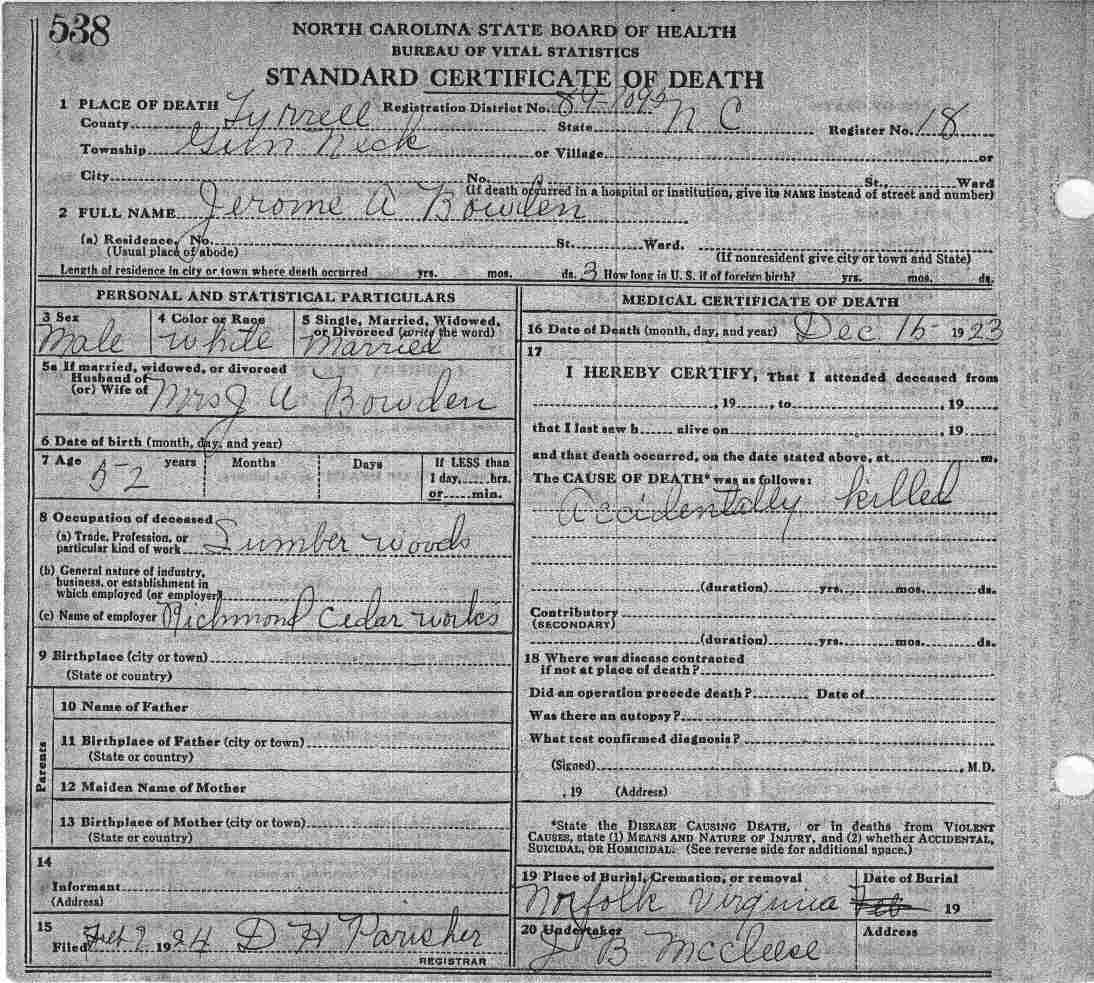 538
NORTH CAROLINA STATE BOARD OF HEALTH
BUREAU OF VITAL STATISTICS
STANDARD CERTIFICATE OF DEATH
1 PLACE OF DEATH Registration District No. 89-1092
County Tyrrell State N C Register No. 18
Township Gum Neck or Village or
City No. St., Ward
(If death occurred in a hospital or institution, give its NAME instead of street and number)
2 FULL NAME Jerome A Bowden
(a) Residence, No. St. Ward.
(Usual place of abode) (If nonresident give city or town and State)
Length of residence in city or town where death occurred yrs. mos. ds. 3 How long in U. S. if of foreign birth? yrs. mos. ds.
PERSONAL AND STATISTICAL PARTICULARS
3 Sex 4 Color or Race 5 Single, Married, Widowed,
or Divorced (write the word)
Male White Married
5a If married, widowed, or divorced
Husband of
(or) Wife of Mrs J A Bowden
6 Date of birth (month, day, and year)
7 Age years Months Days If LESS than
52 1 day, hrs.
or min.
8 Occupation of deceased
(a) Trade, Profession, or
particular kind of work Lumber woods
(b) General nature of industry,
business, or establishment in
which employed (or employer)
(c) Name of employer Richmond Cedar works
9 Birthplace (city or town)
(State or country)
Parents
10 Name of Father
11 Birthplace of Father (city or town)
(State or country)
12 Maiden Name of Mother
13 Birthplace of Mother (city or town)
(State or country)
14
Informant
(Address)
15
Filed Feb 9 1924 D H Parisher
REGISTRAR
MEDICAL CERTIFICATE OF DEATH
16 Date of Death (month, day, and year) Dec 15 1923
17
I HEREBY CERTIFY, That I attended deceased from
, 19 , to , 19
that I last saw h alive on , 19
and that death occurred, on the date stated above, at m.
The CAUSE OF DEATH* was as follows:
Accidentally killed
(duration) yrs. mos. ds.
Contributory
(SECONDARY)
(duration) yrs. mos. ds.
18 Where was disease contracted
if not at place of death?
Did an operation precede death? Date of
Was there an autopsy?
What test confirmed diagnosis?
(Signed) , M.D.
, 19 (Address)
*State the DISEASE CAUSING DEATH, or in deaths from VIOLENT
CAUSES, state (1) MEANS AND NATURE OF INJURY, and (2) whether ACCIDENTAL,
SUICIDAL, OR HOMICIDAL. (See reverse side for additional space.)
19 Place of Burial, Cremation, or removal Date of Burial
Norfolk Virginia Feb 19
20 Undertaker Address
J B McCleese